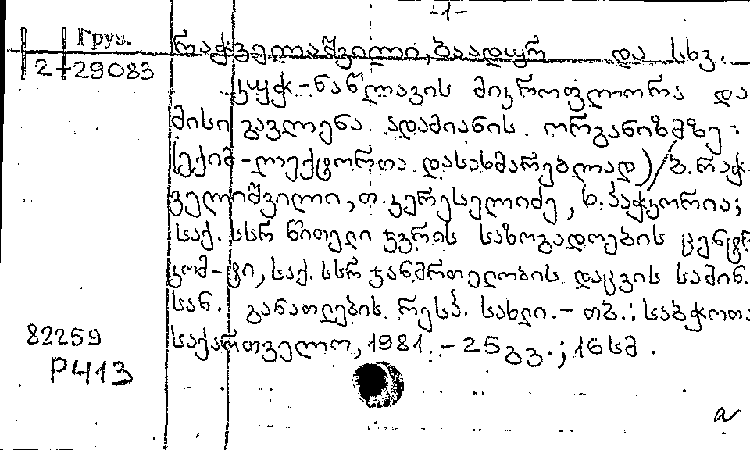 -1-
Груз.
2-29083
რაჭველაშვილი, ბაადურ და სხვ.
კუჭ-ნაწლავის მიკროფლორა და
მისი გავლენა ადამიანის ორგანიზმზე:
(ექიმ-ლექტორთა დასახმარებლად) / ბ. რაჭ-
ველიშვილი, თ. კერესელიძე,
საქ. სსრ წითელი ჯვრის საზოგადოების ცენტრ.
კომ-ტი, საქ. სსრ ჯანმრთელობის დაცვის სამინ.
სან. განათლების რესპ. სახლი. - თბ.: საბჭოთა
საქართველო, 1981. - 25 გვ.; 16 სმ.
82259
Р413
a